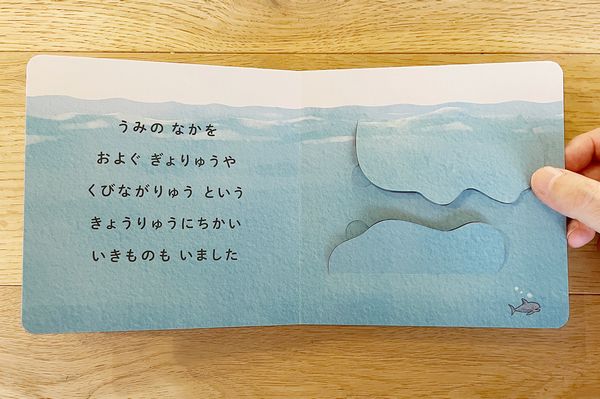 うみの なかを
およぐ ぎょりゅうや
くびながりゅう という
きょうりゅうにちかい
いきものも いました